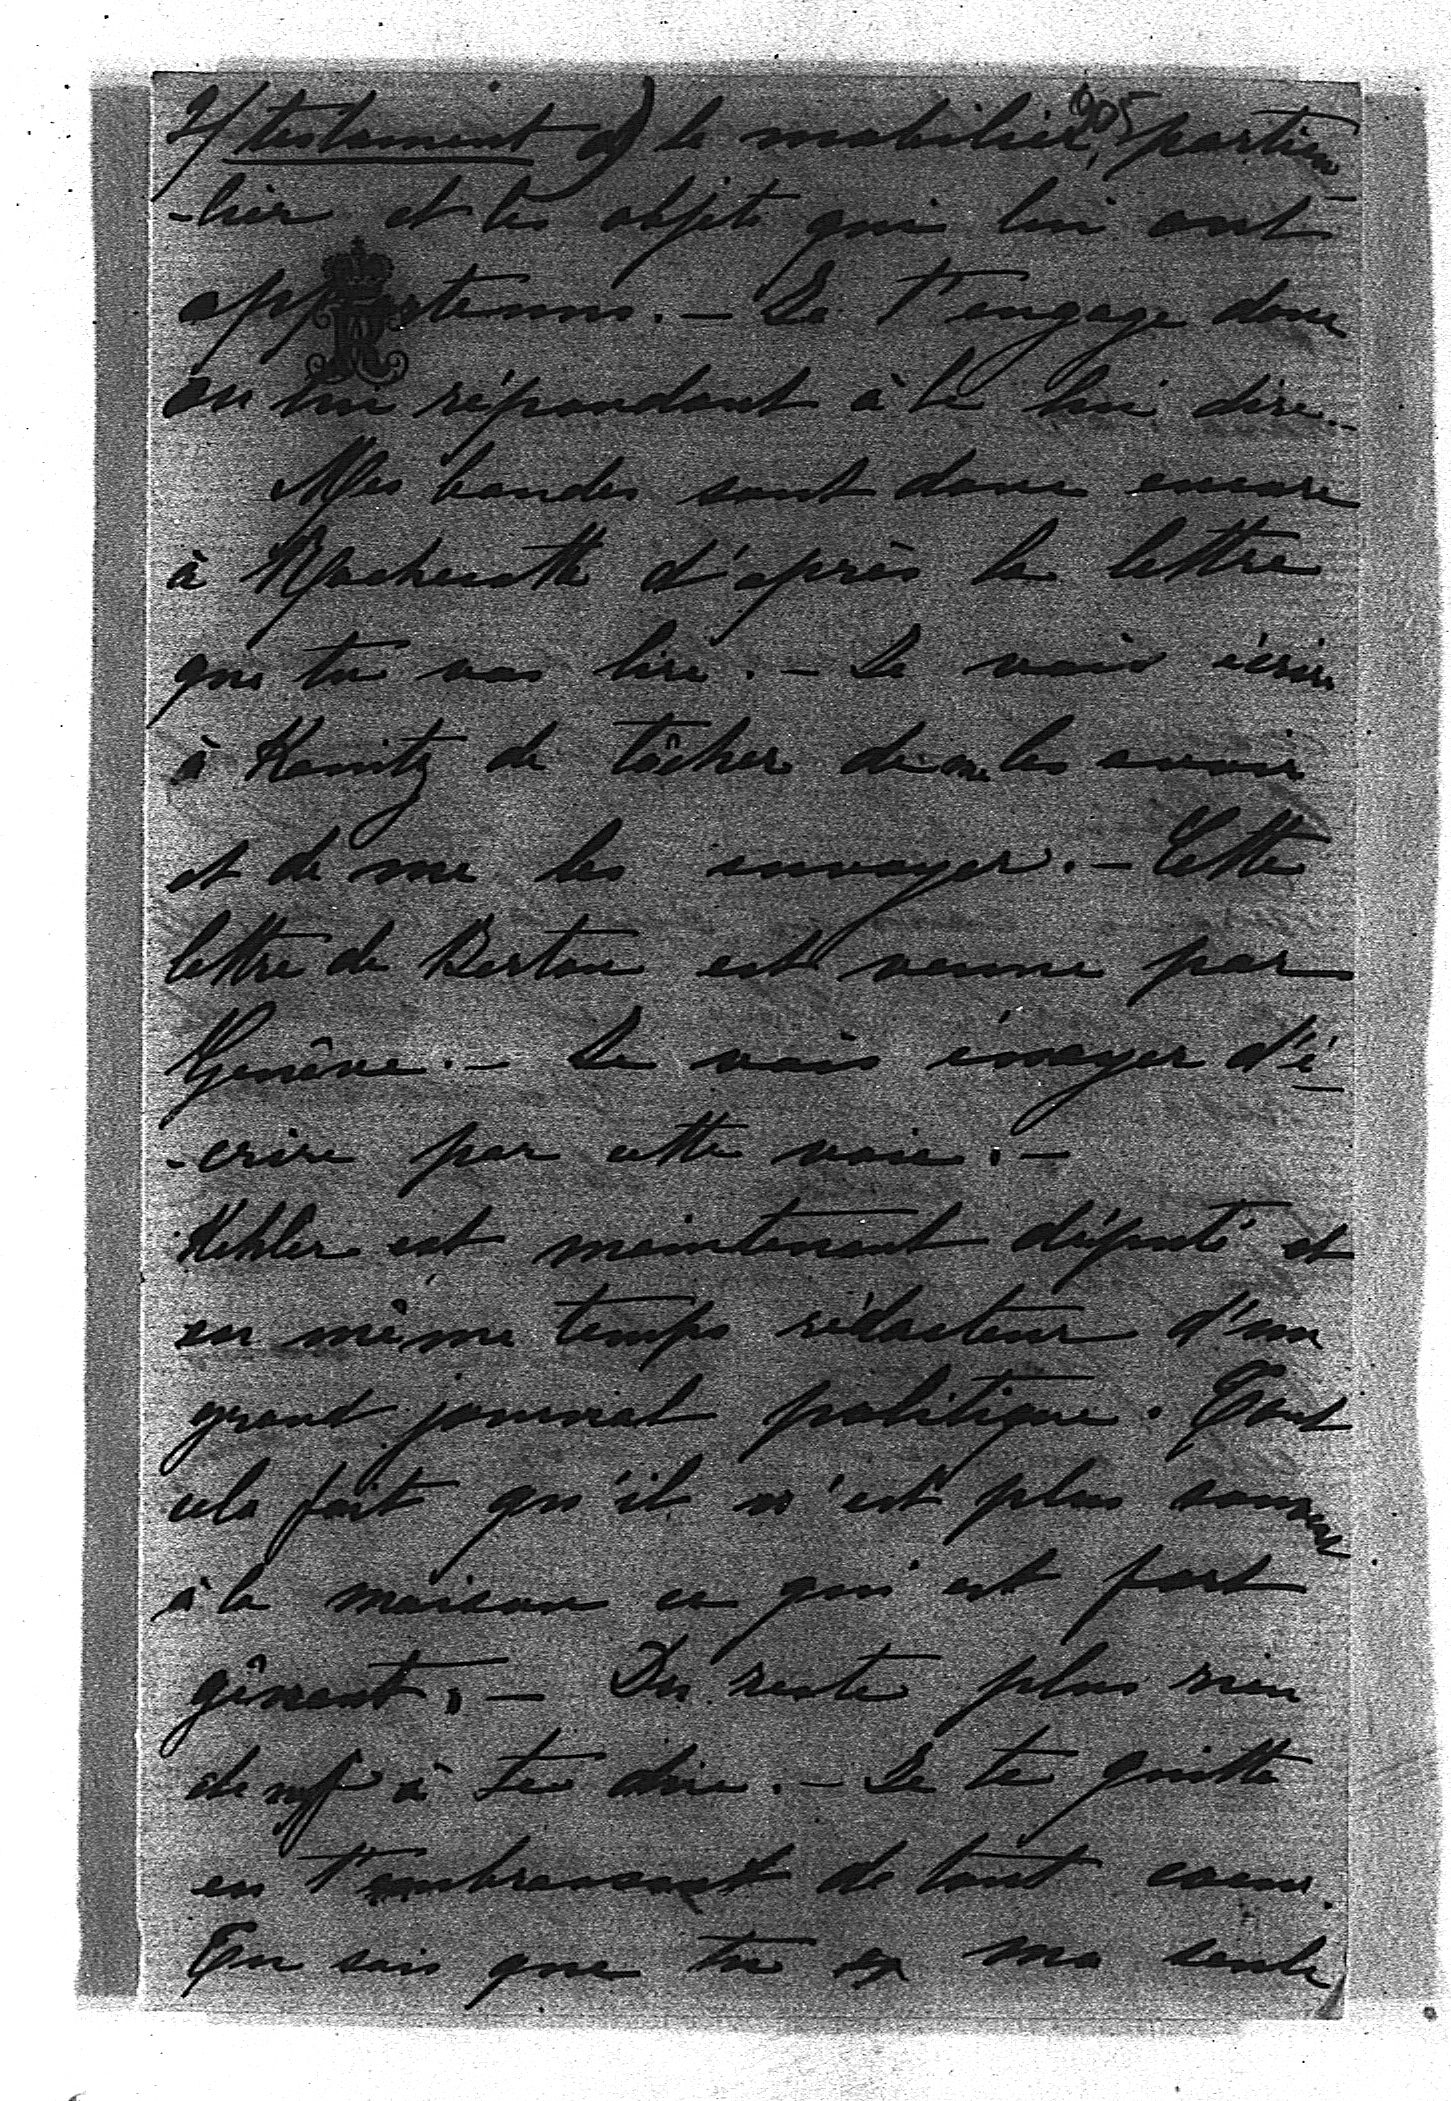 2/ testament a) le mobilier, particu
905
-lier et les objets qui lui ont
appartenus. — Je t'engage donc
en lui répondant à le lui dire.-
Mes bandes sont donc encore
à d'après la lettre
que tu vas lire. — Je vais écrire
à Kanitz de tâcher de les avoir
et de me les envoyer. — Cette
lettre de est venue par
Genève. — Je vais éssayer d'é
-crire par cette voie. —
Kehler est maintenant député et
en même temps rédacteur d'un
grand journal politique. Tout
cela fait qu'il n'est plus souvent
à la maison ce qui est fort
gênant. — Du reste plus rien
de à te dire. — Je te quitte
en t'embrassant de tout coeur.
Tu sais que tu es ma seule